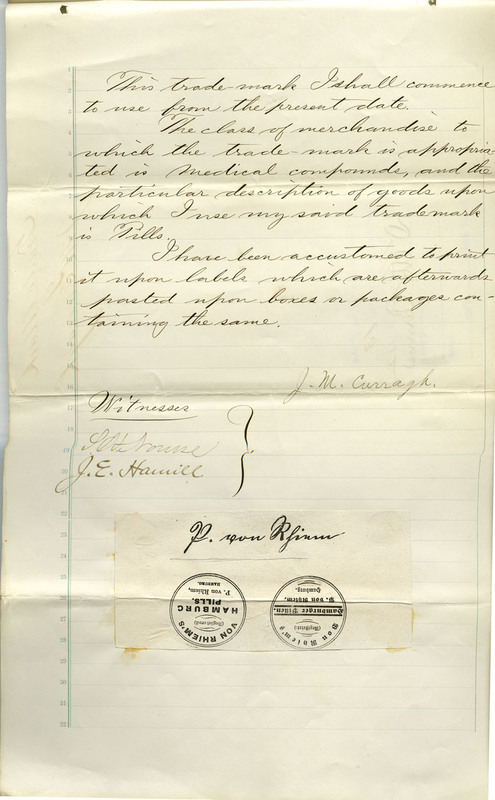 This trade-mark I shall commence
to use from the present date.
The class of merchandise to
which the trade-mark is appropria-
ted is Medical compounds, and the
particular description of goods upon
which I use my said trademark
is Pills.
I have been accustomed to print
it upon labels which are afterwards
pasted upon boxes or packages con-
taining the same.
J. M. Curragh.
Witnesses
J. E. Hamill
P. von Rhiem
VON RHIEM'S
(Registered)
HAMBURG
PILLS.
P. von Rhiem,
HAMBURG.
Von Rhiem's
(Registered)
Hamburger Pillen.
P. von Rhiem,
Hamburg.